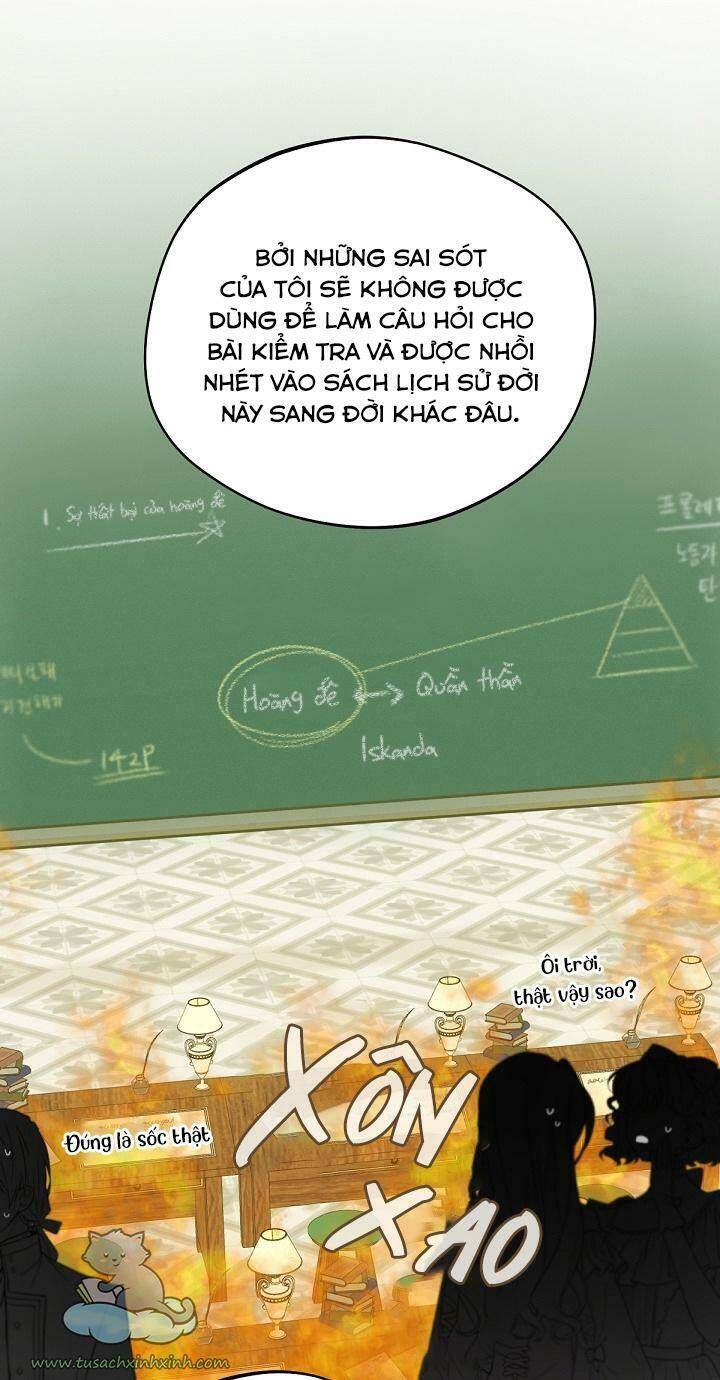 BỞI NHỮNG SAI SÓT
CỦA TÔI SẼ KHÔNG ĐƯỢC
DÙNG ĐỂ LÀM CÂU HỎI CHO
BÀI KIỂM TRA VÀ ĐƯỢC NHỒI
NHÉT VÀO SÁCH LỊCH SỬ ĐỜI
NÀY SANG ĐỜI KHÁC ĐÂU.
1. Sự thất bại của hoàng đế
프롤레
노동자
탄
Hoàng đế <--> Quần thần
Iskanda
142P
Ôi trời,
thật vậy sao?
XÔN
Đúng là sốc thật
XAO
www.tusachxinhxinh.com